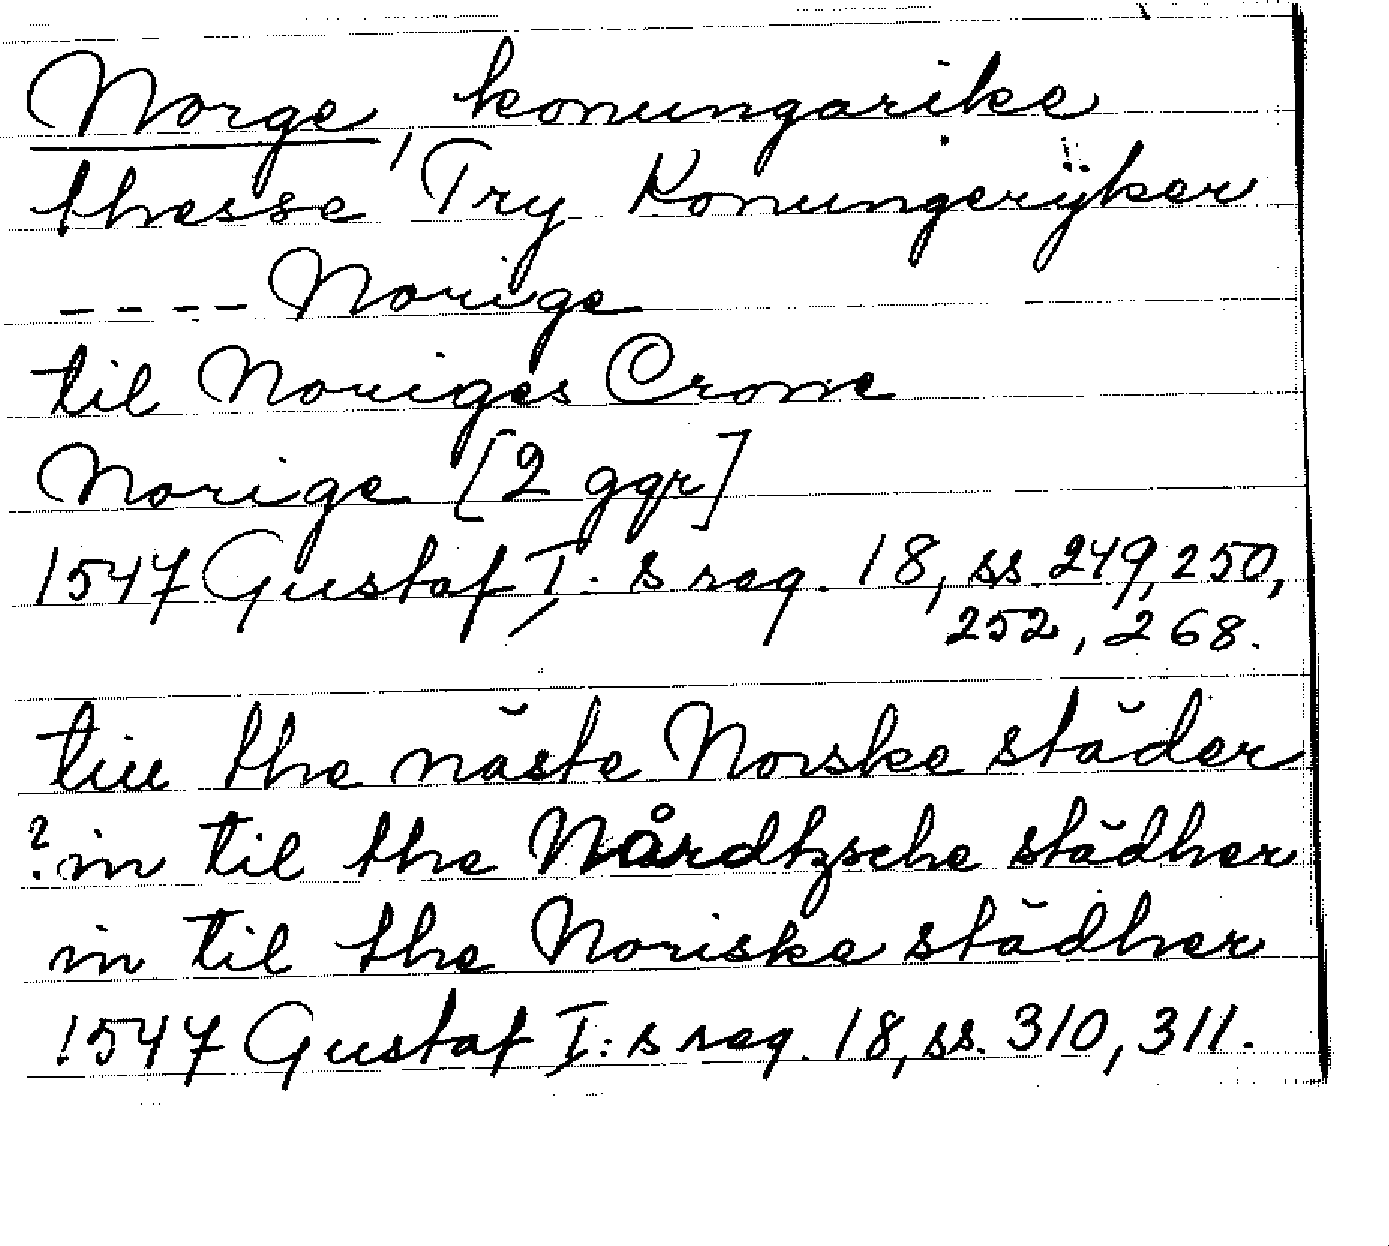 Norge, konungarike
thesse Try Konungerÿker
---- Norige
til Noriges Crone
Norige [2 ggr]
1547 Gustaf I:s reg. 18, ss. 249, 250,
252, 268.
till the näste Norske städer
? in til the Nårdtzsche städher
in til the Noriske städher
1547 Gustaf I:s reg. 18, ss. 310, 311.